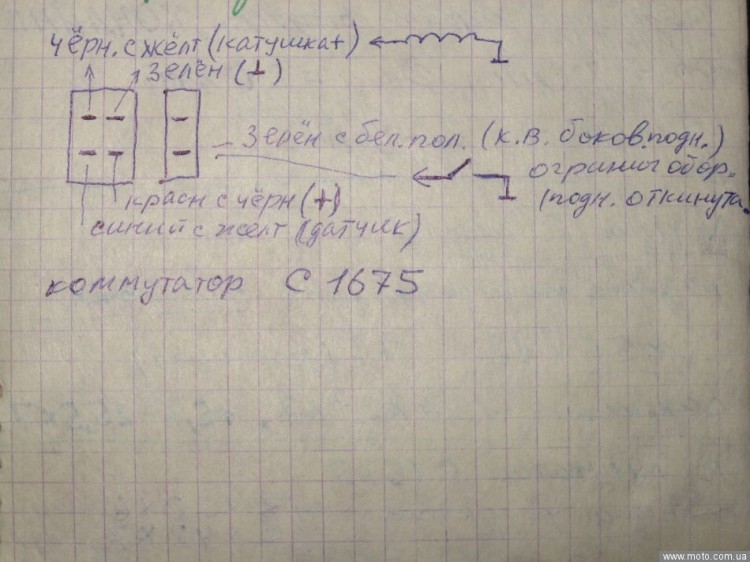 чёрн. с жёлт (катушка+)
зелён (⊥)
зелён с бел. пол. (к.в. боков. подн.)
огранич обор.
(подн. откинута.
красн с чёрн (+)
синий с жёлт (датчик)
коммутатор С 1675
www.moto.com.ua